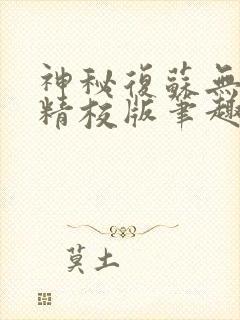 神秘復蘇無
精校版筆趣
莫土